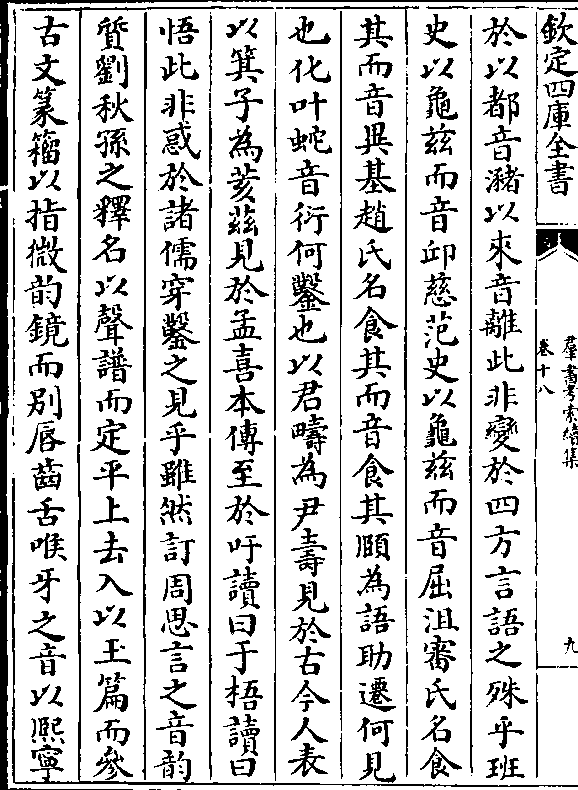 欽定四庫全書
羣書考索續集
卷十八
九
於以都音瀦以來音離此非變於四方言語之殊乎班
史以龜茲而音邱慈范史以龜茲而音屈沮審氏名食
其而音異基趙氏名食其而音食其頤為語助遷何見
也化叶蛇音衍何鑿也以君疇為尹壽見於古今人表
以箕子為荄茲見於孟喜本傳至於吁讀曰于梧讀曰
悟此非惑於諸儒穿鑿之見乎雖然訂周思言之音韵
質劉秋孫之釋名以聲譜而定平上去入以玉篇而參
古文篆籀以指微韵鏡而别唇齒舌喉牙之音以熙寧